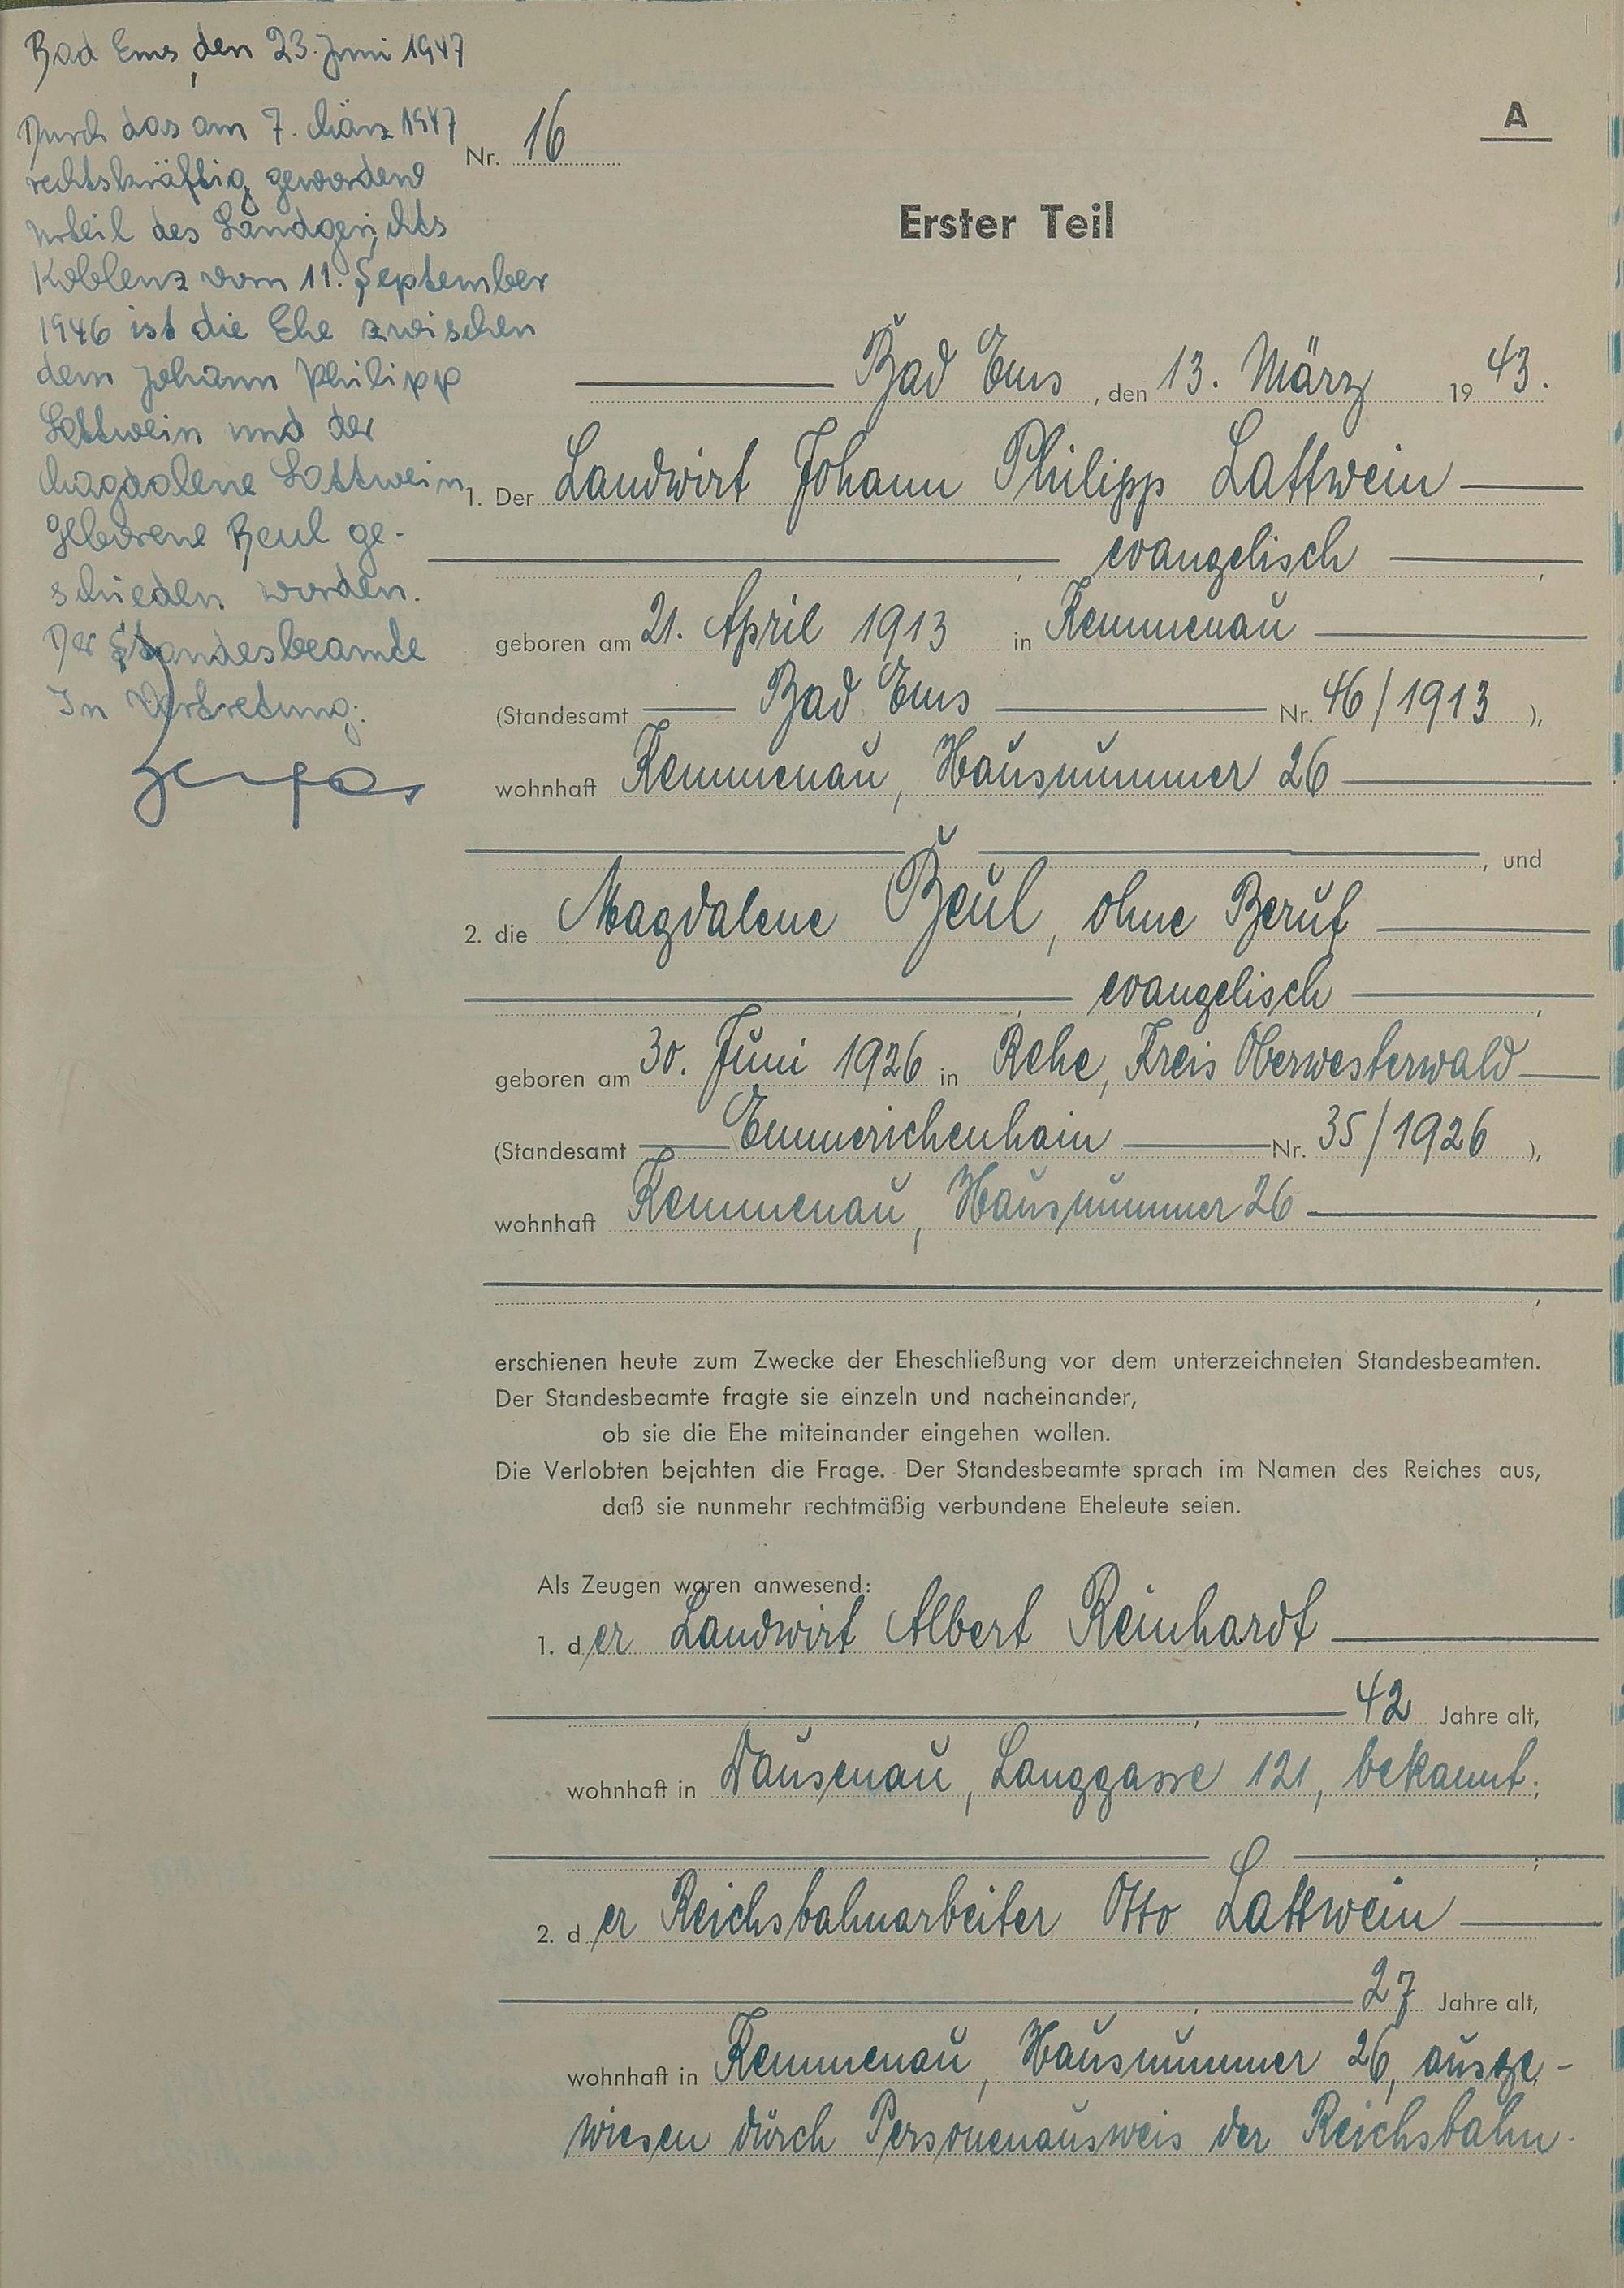 Bad Ems, den 23. Juni 1947
Durch das am 7. März 1947
rechtskräftig gewordene
Urteil des Landgerichts
Koblenz vom 11. September
1946 ist die Ehe zwischen
dem Johann Philipp
Lottwein und der
Magdalene Lottwein
geborene Beul ge-
schieden worden.
Der Standesbeamte
In Vertretung:
A
Nr. 16
Erster Teil
Bad Ems, den 13. März 1943.
1. Der Landwirt Johann Philipp Lattwein
, evangelisch ,
geboren am 21. April 1913 in Kemmenau
(Standesamt Bad Ems Nr. 46/1913 ),
wohnhaft Kemmenau, Hausnummer 26
, und
2. die Magdalene Beul, ohne Beruf
, evangelisch ,
geboren am 30. Juni 1926 in Rehe, Kreis Oberwesterwald
(Standesamt Emmerichenhain Nr. 35/1926 ),
wohnhaft Kemmenau, Hausnummer 26
,
erschienen heute zum Zwecke der Eheschließung vor dem unterzeichneten Standesbeamten.
Der Standesbeamte fragte sie einzeln und nacheinander,
ob sie die Ehe miteinander eingehen wollen.
Die Verlobten bejahten die Frage. Der Standesbeamte sprach im Namen des Reiches aus,
daß sie nunmehr rechtmäßig verbundene Eheleute seien.
Als Zeugen waren anwesend:
1. der Landwirt Albert Reinhardt
, 42 Jahre alt,
wohnhaft in Dausenau, Langgasse 121, bekannt;
;
2. der Reichsbahnarbeiter Otto Lattwein
, 27 Jahre alt,
wohnhaft in Kemmenau, Hausnummer 26, ausge-
wiesen durch Personenausweis der Reichsbahn.